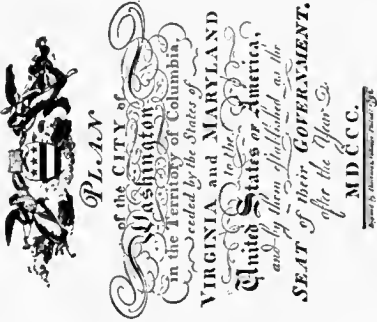 PLAN
of the CITY of
Washington
in the Territory of Columbia,
ceded by the States of
VIRGINIA and MARYLAND
to the
United States of America,
and by them established as the
SEAT of their GOVERNMENT,
after the Year
MDCCC.